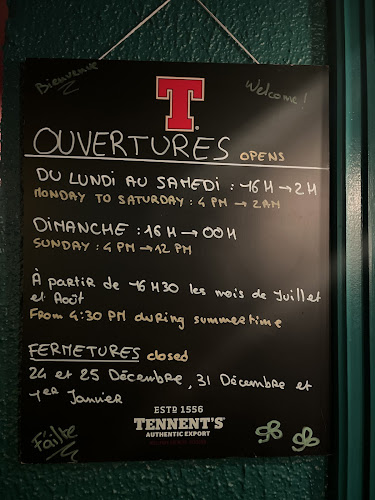 Bienvenue
Welcome!
T
OUVERTURES OPENS
DU LUNDI AU SAMEDI : 16H → 2H
MONDAY TO SATURDAY : 4 PM → 2AM
DIMANCHE : 16H → 00H
SUNDAY : 4 PM → 12 PM
À partir de 16H30 les mois de Juillet
et Août
From 4:30 PM during summertime
FERMETURES closed
24 et 25 Décembre, 31 Décembre et
1er Janvier
ESTD 1556
TENNENT'S
AUTHENTIC EXPORT
Fáilte